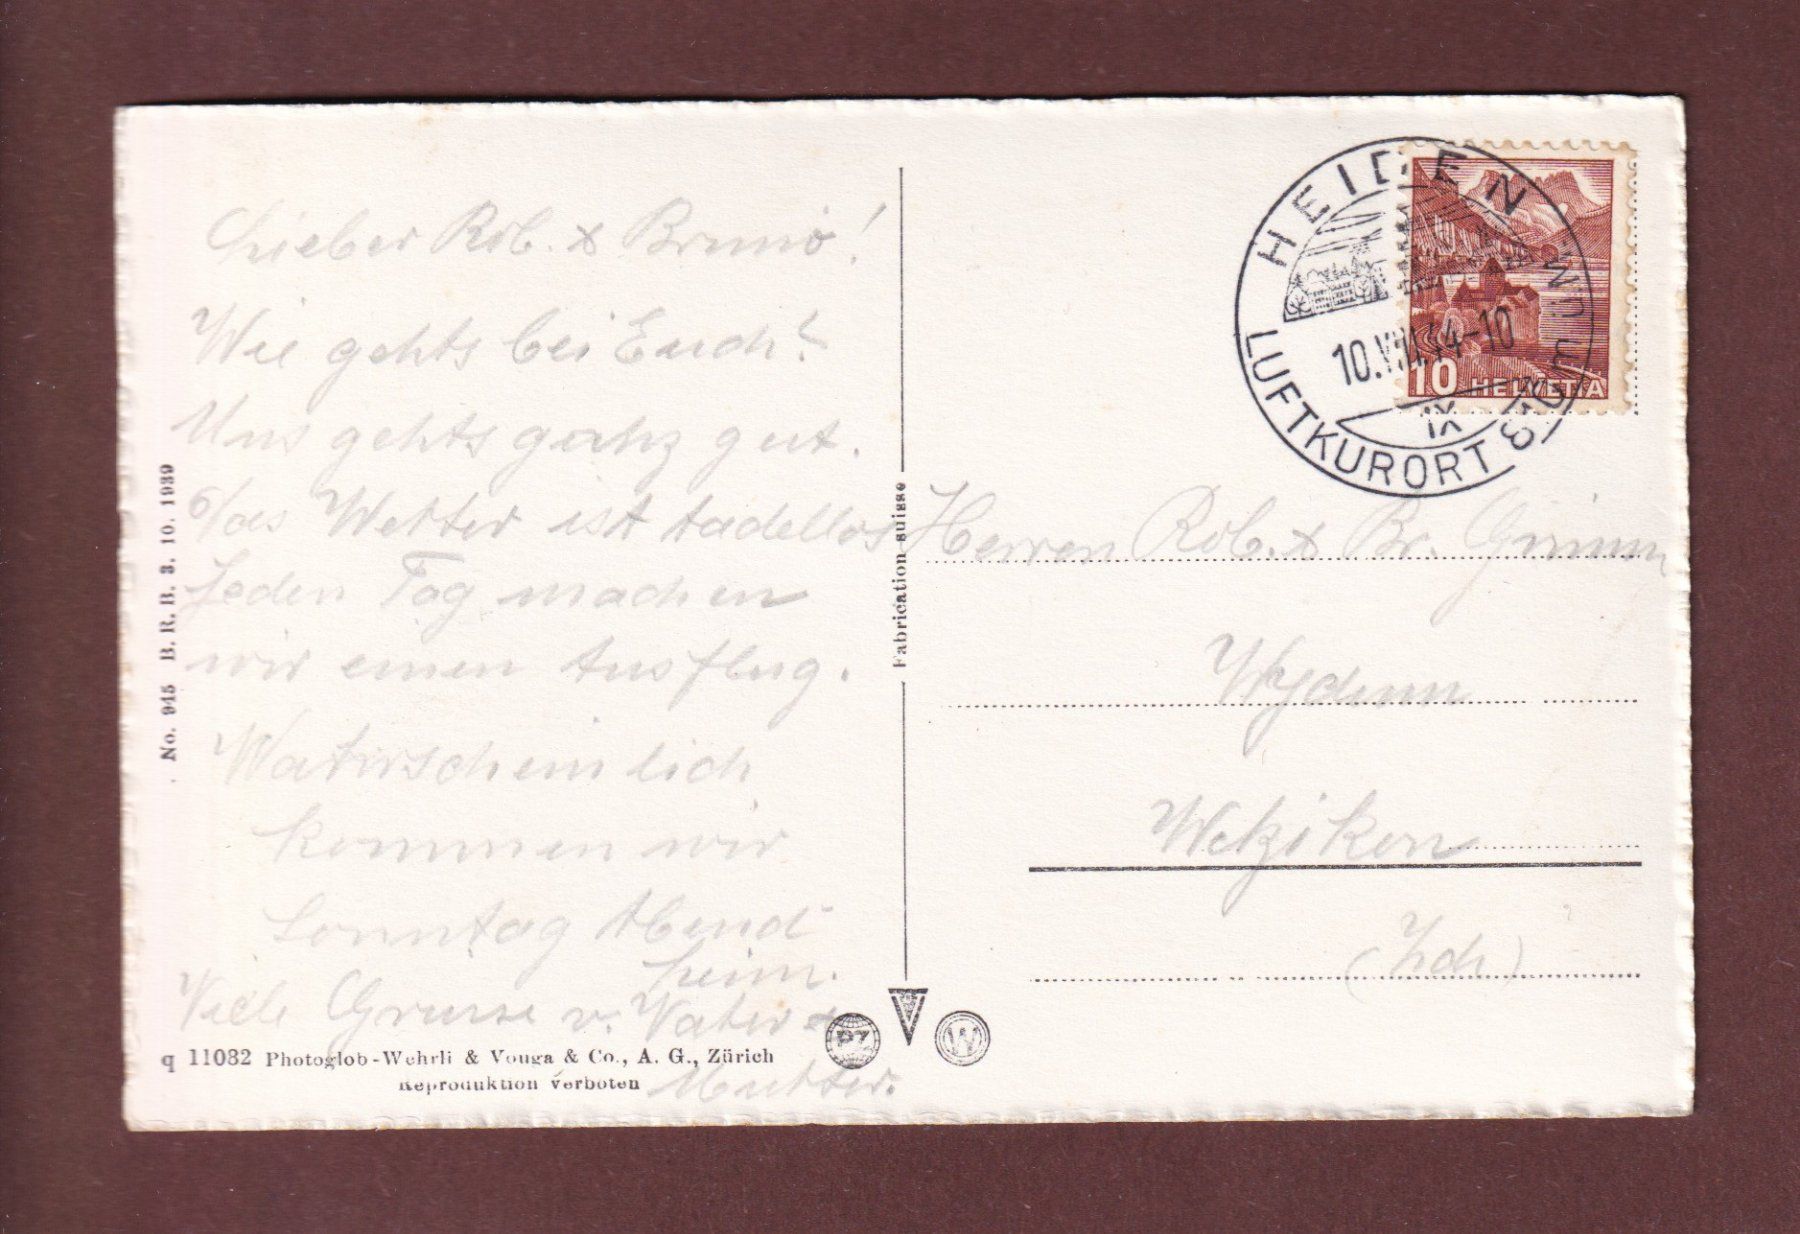 Lieber Rob. & Bruno!
Wie gehts bei Euch?
Uns gehts ganz gut.
Das Wetter ist tadellos
Jeden Tag machen
wir einen Ausflug.
Warscheinlich
kommen wir
Sonntag Abend
heim.
Viele Grüsse v. Vater &
Mutter.
No. 945 B. R. B. 3. 10. 1939
q 11082 Photoglob-Wehrli & Vouga & Co., A. G., Zürich
Reproduktion verboten
Fabrication suisse
PZ
W
HEIDEN
LUFTKURORT 810 m ü.M.
10.VIII.44-10
IX
10 HELVETIA
Herren Rob. & Br. Grimm
Wydum
Wetzikon
(Zch)